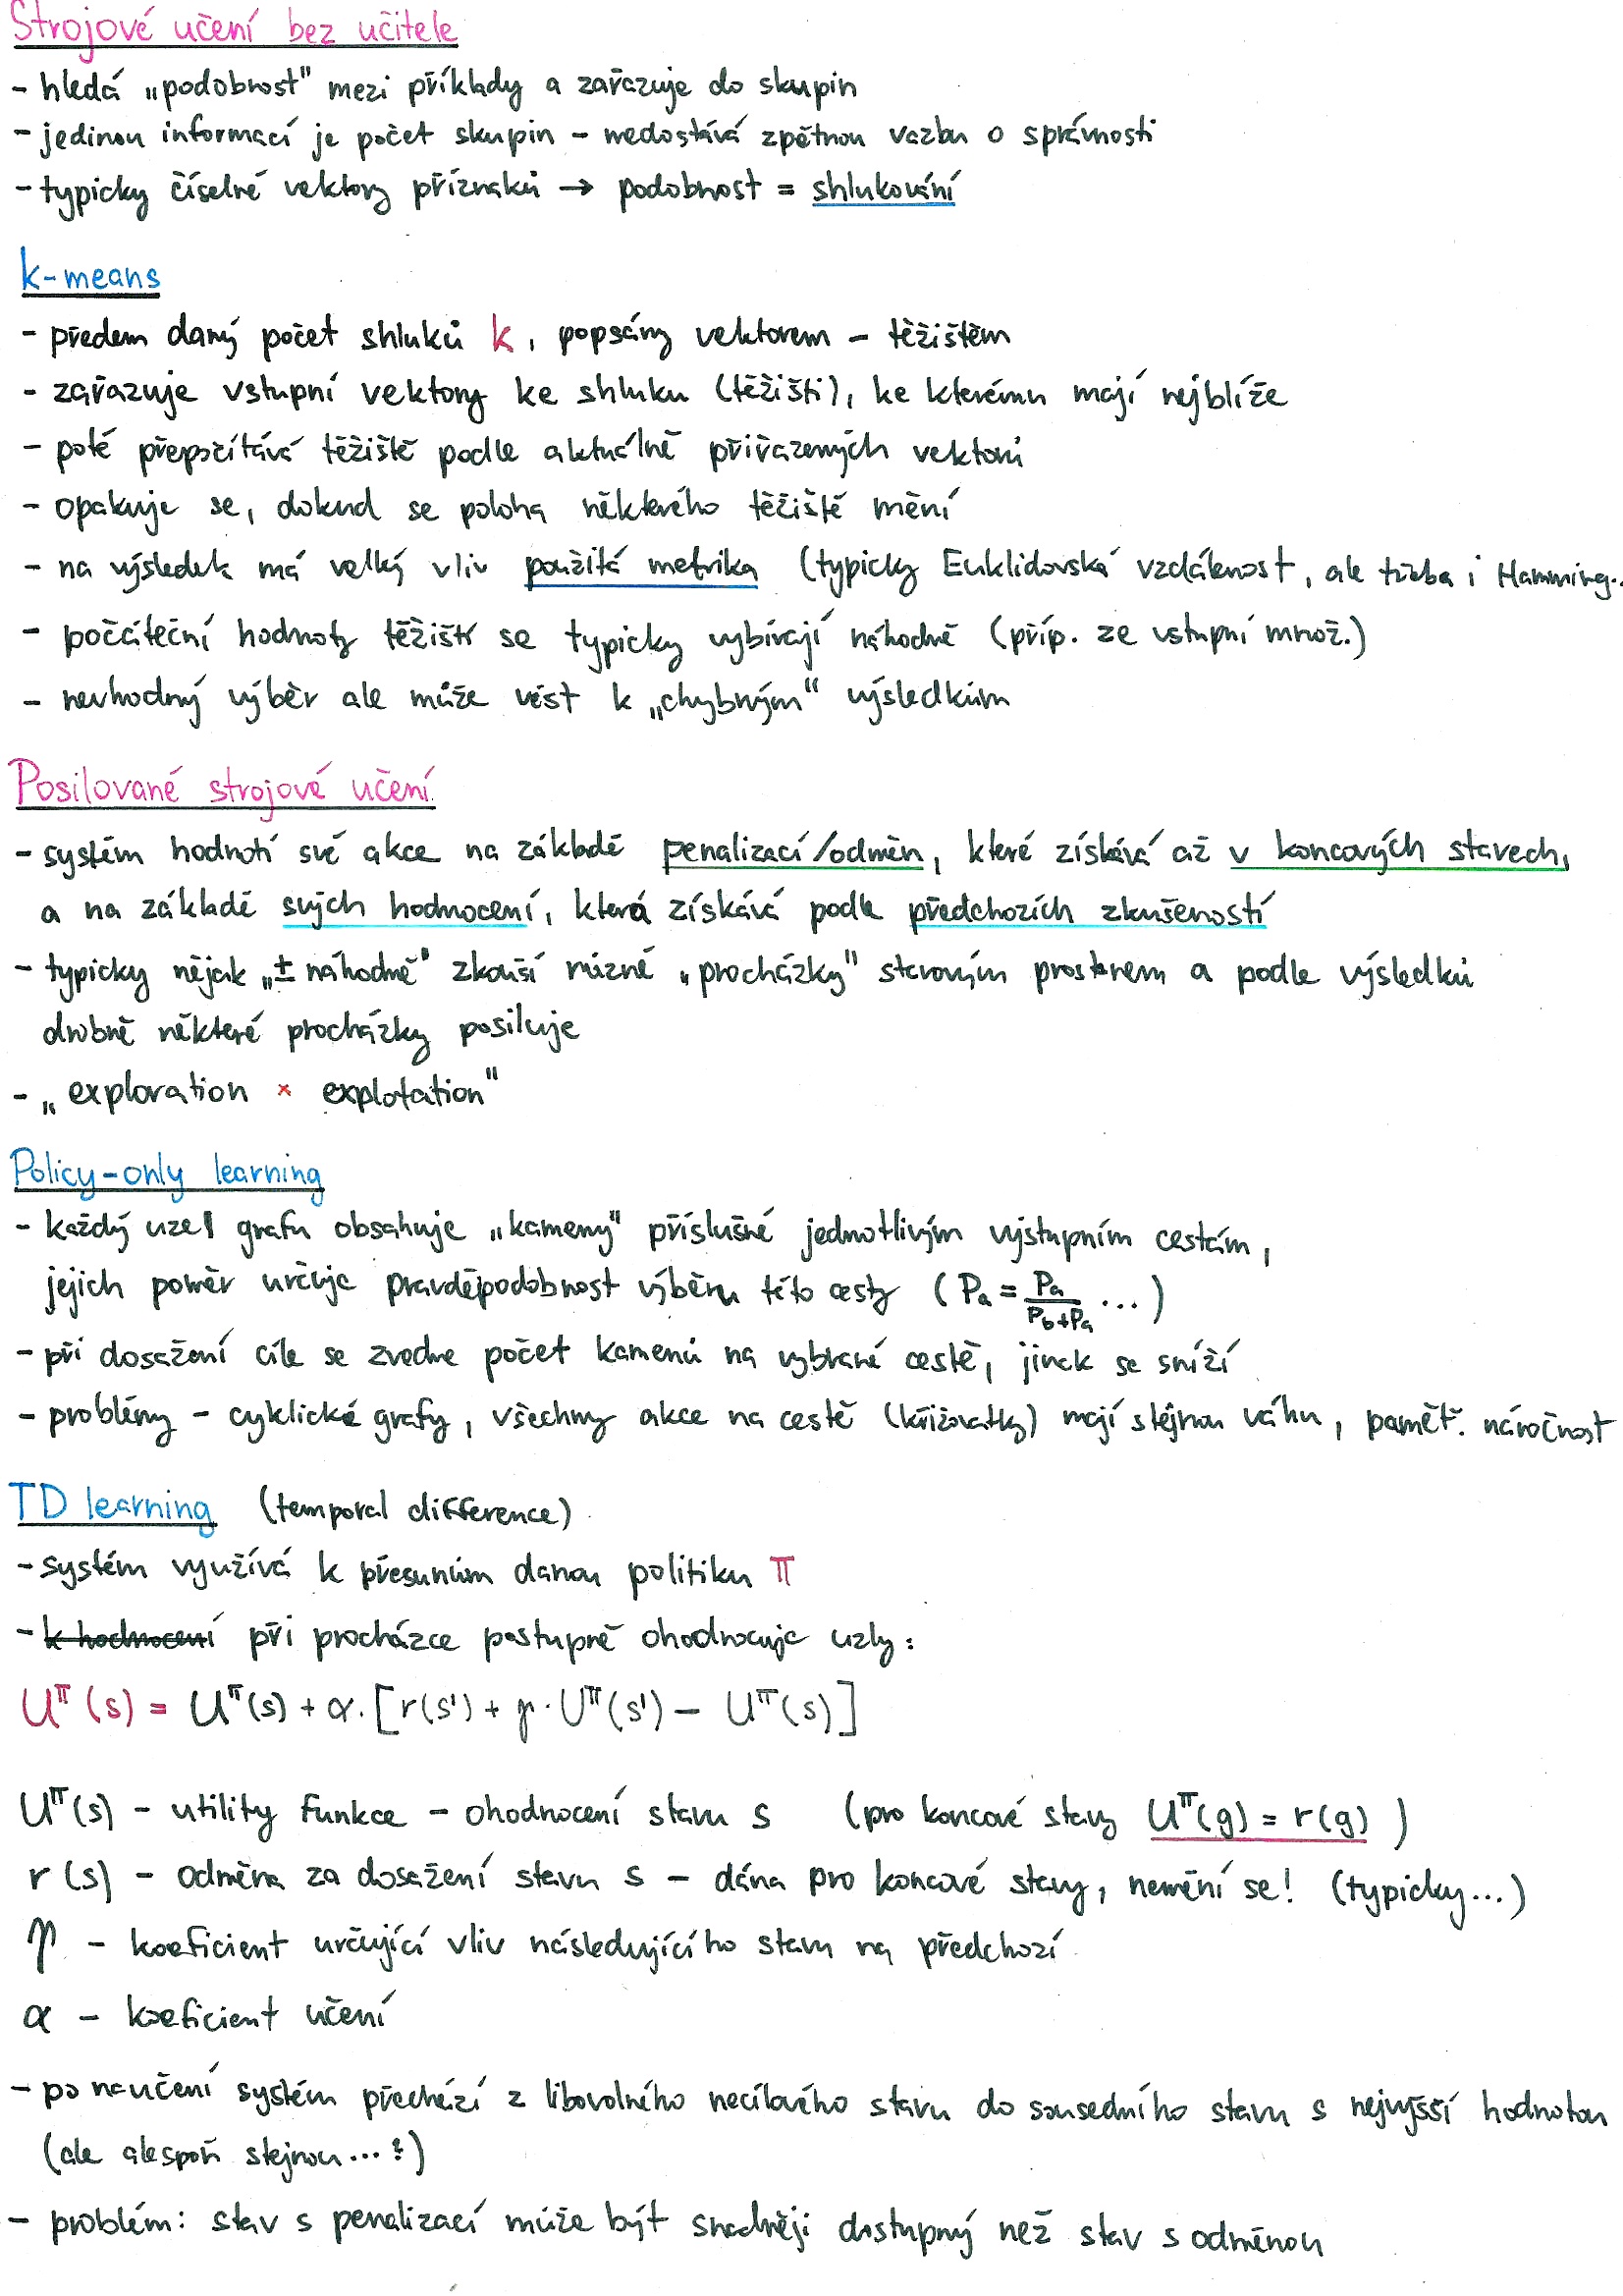 Strojové učení bez učitele
- hledá „podobnost" mezi příklady a zařazuje do skupin
- jedinou informací je počet skupin - nedostává zpětnou vazbu o správnosti
- typicky číselné vektory příznaků → podobnost = shlukování
k-means
- předem daný počet shluků k, popsány vektorem - těžištěm
- zařazuje vstupní vektory ke shluku (těžišti), ke kterému mají nejblíže
- poté přepočítává těžiště podle aktuálně přiřazených vektorů
- opakuje se, dokud se poloha některého těžiště mění
- na výsledek má velký vliv použitá metrika (typicky Euklidovská vzdálenost, ale třeba i Hamming..
- počáteční hodnoty těžišť se typicky vybírají náhodně (příp. ze vstupní množ.)
- nevhodný výběr ale může vést k „chybným" výsledkům
Posilované strojové učení
- systém hodnotí své akce na základě penalizací/odměn, které získává až v koncových stavech,
a na základě svých hodnocení, která získává podle předchozích zkušeností
- typicky nějak „± náhodně" zkouší různé „procházky" stavovým prostorem a podle výsledků
drobně některé procházky posiluje
- „exploration × explotation"
Policy-only learning
- každý uzel grafu obsahuje „kameny" příslušné jednotlivým výstupním cestám,
jejich poměr určuje pravděpodobnost výběru této cesty (Pa = Pa/(Pb+Pa) ...)
- při dosažení cíle se zvedne počet kamenů na vybrané cestě, jinak se sníží
- problémy - cyklické grafy, všechny akce na cestě (křižovatky) mají stejnou váhu, paměť. náročnost
TD learning (temporal difference)
- systém využívá k přesunům danou politiku π
- k hodnocení při procházce postupně ohodnocuje uzly:
U^π(s) = U^π(s) + α · [r(s') + γ · U^π(s') - U^π(s)]
U^π(s) - utility funkce - ohodnocení stavu s (pro koncové stavy U^π(g) = r(g))
r(s) - odměna za dosažení stavu s - dána pro koncové stavy, nemění se! (typicky...)
γ - koeficient určující vliv následujícího stavu na předchozí
α - koeficient učení
- po naučení systém přechází z libovolného necílového stavu do sousedního stavu s nejvyšší hodnotou
(ale alespoň stejnou...?)
- problém: stav s penalizací může být snadněji dostupný než stav s odměnou